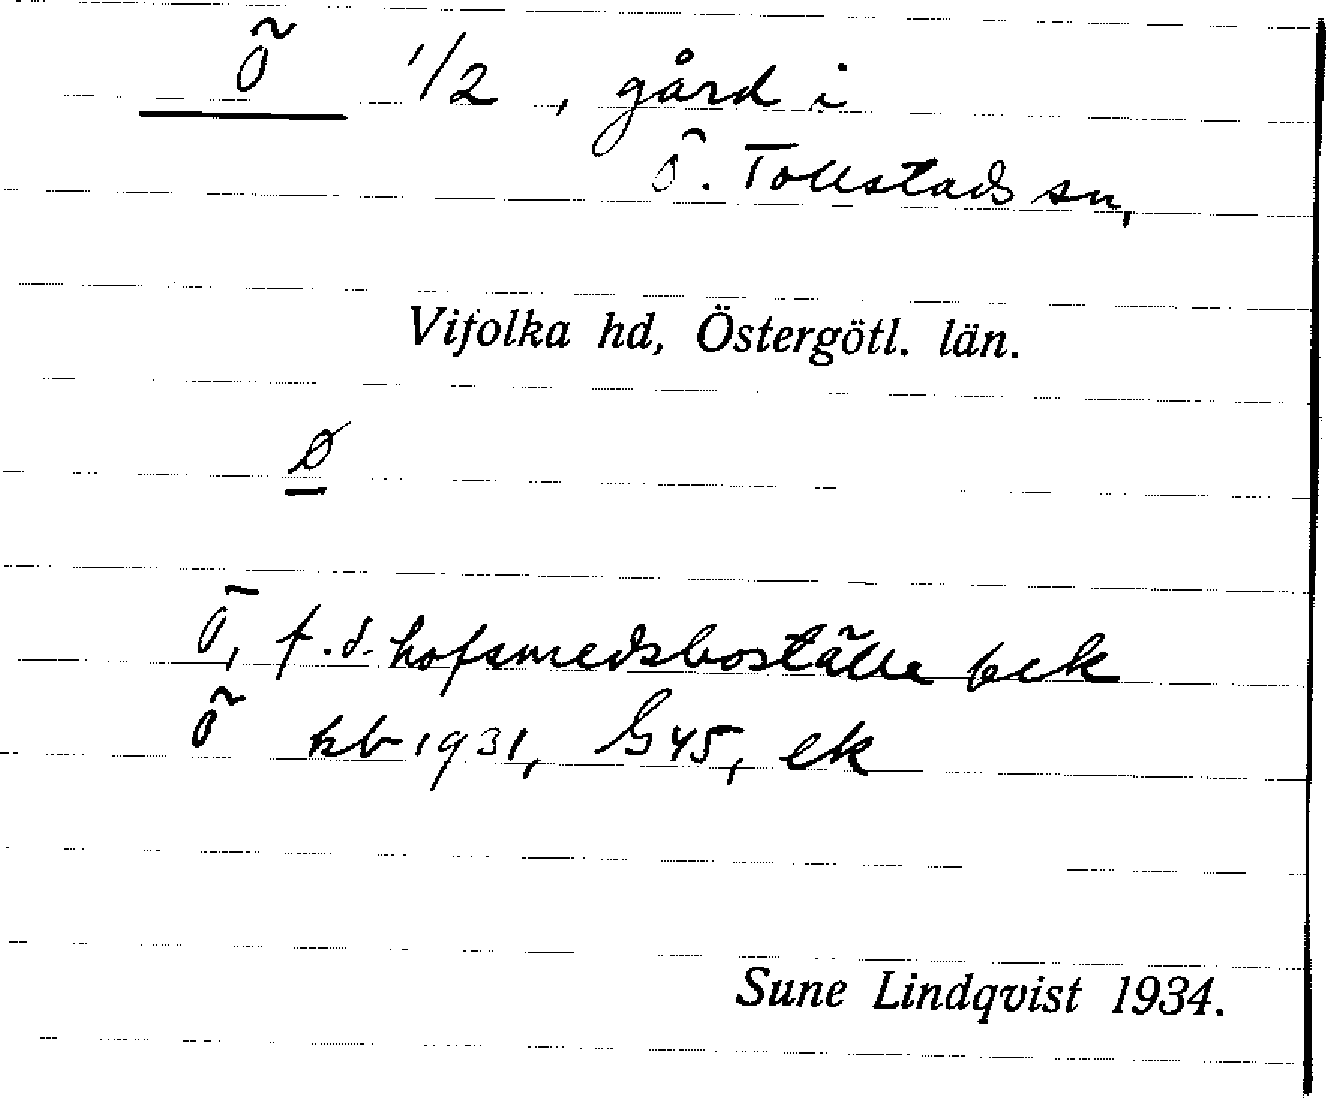 Ö 1/2, gård i
Ö. Tollstads sn,
Vifolka hd, Östergötl. län.
ø
Ö, f.d. hofsmedsboställe bek
Ö kb 1931, G 45, ek
Sune Lindqvist 1934.